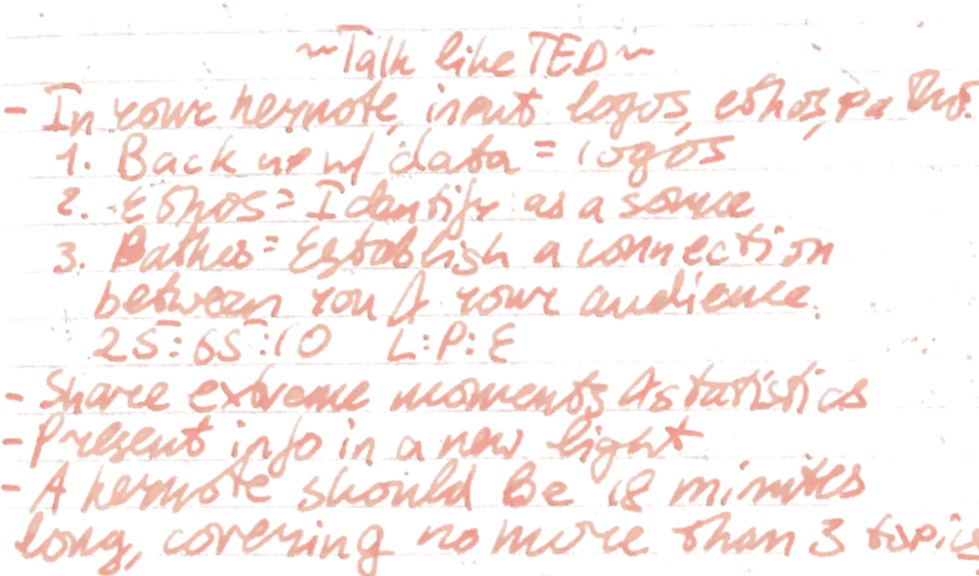 ~Talk like TED~
- In your keynote, input logos, ethos, pathos.
1. Back up w/ data = logos
2. Ethos = Identify as a source
3. Pathos = Establish a connection
between you & your audience.
25:65:10 L:P:E
- Share extreme moments & statistics
- Present info in a new light
- A keynote should be 18 minutes
long, covering no more than 3 topics